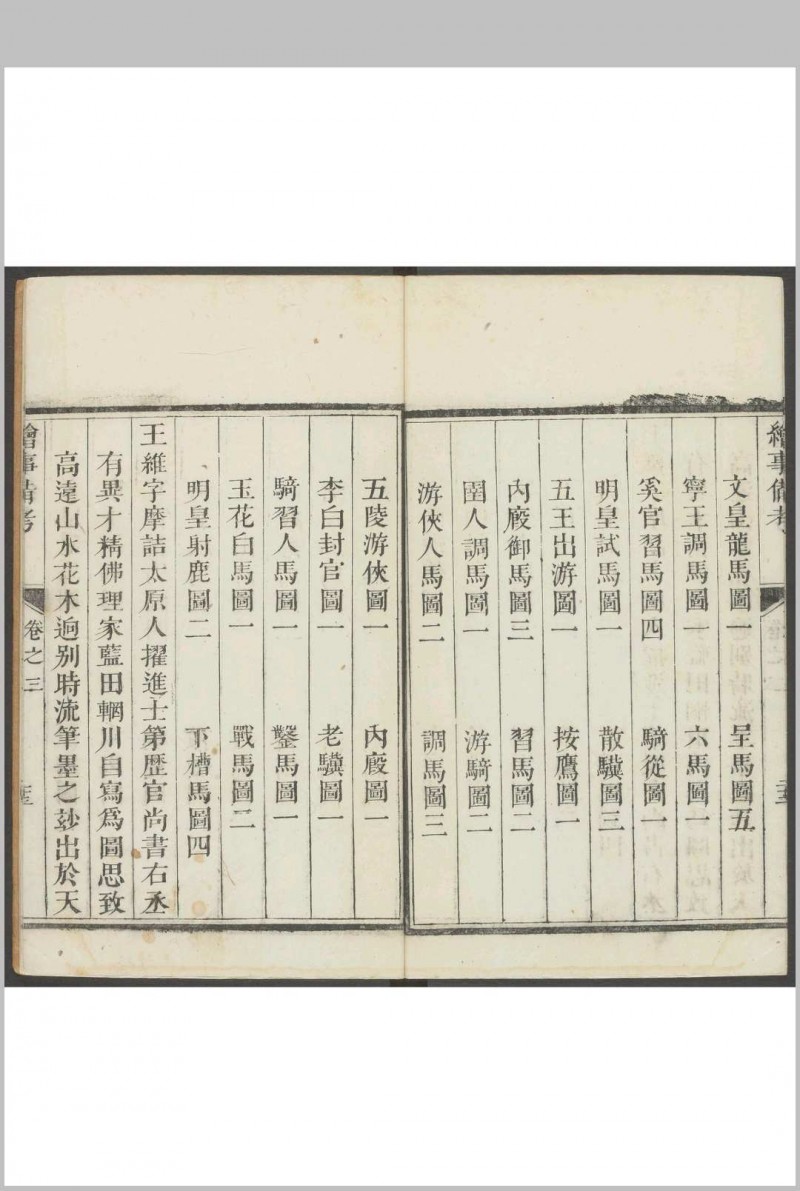 繪事備考
文皇龍馬圖一 呈馬圖五
寧王調馬圖一 六馬圖一
奚官習馬圖四 騎從圖一
明皇試馬圖一 散驥圖三
五王出游圖一 按鷹圖一
內廄御馬圖三 習馬圖二
圉人調馬圖一 游騎圖二
游俠人馬圖二 調馬圖三
五陵游俠圖一 內廄圖一
李白封官圖一 老驥圖一
騎習人馬圖一 鑿馬圖一
玉花白馬圖一 戰馬圖二
明皇射鹿圖二 下槽馬圖四
王維字摩詰太原人擢進士第歷官尚書右丞
有異才精佛理家藍田輞川自寫為圖思致
高遠山水花木逈別時流筆墨之玅出於天
繪事備考 卷之三